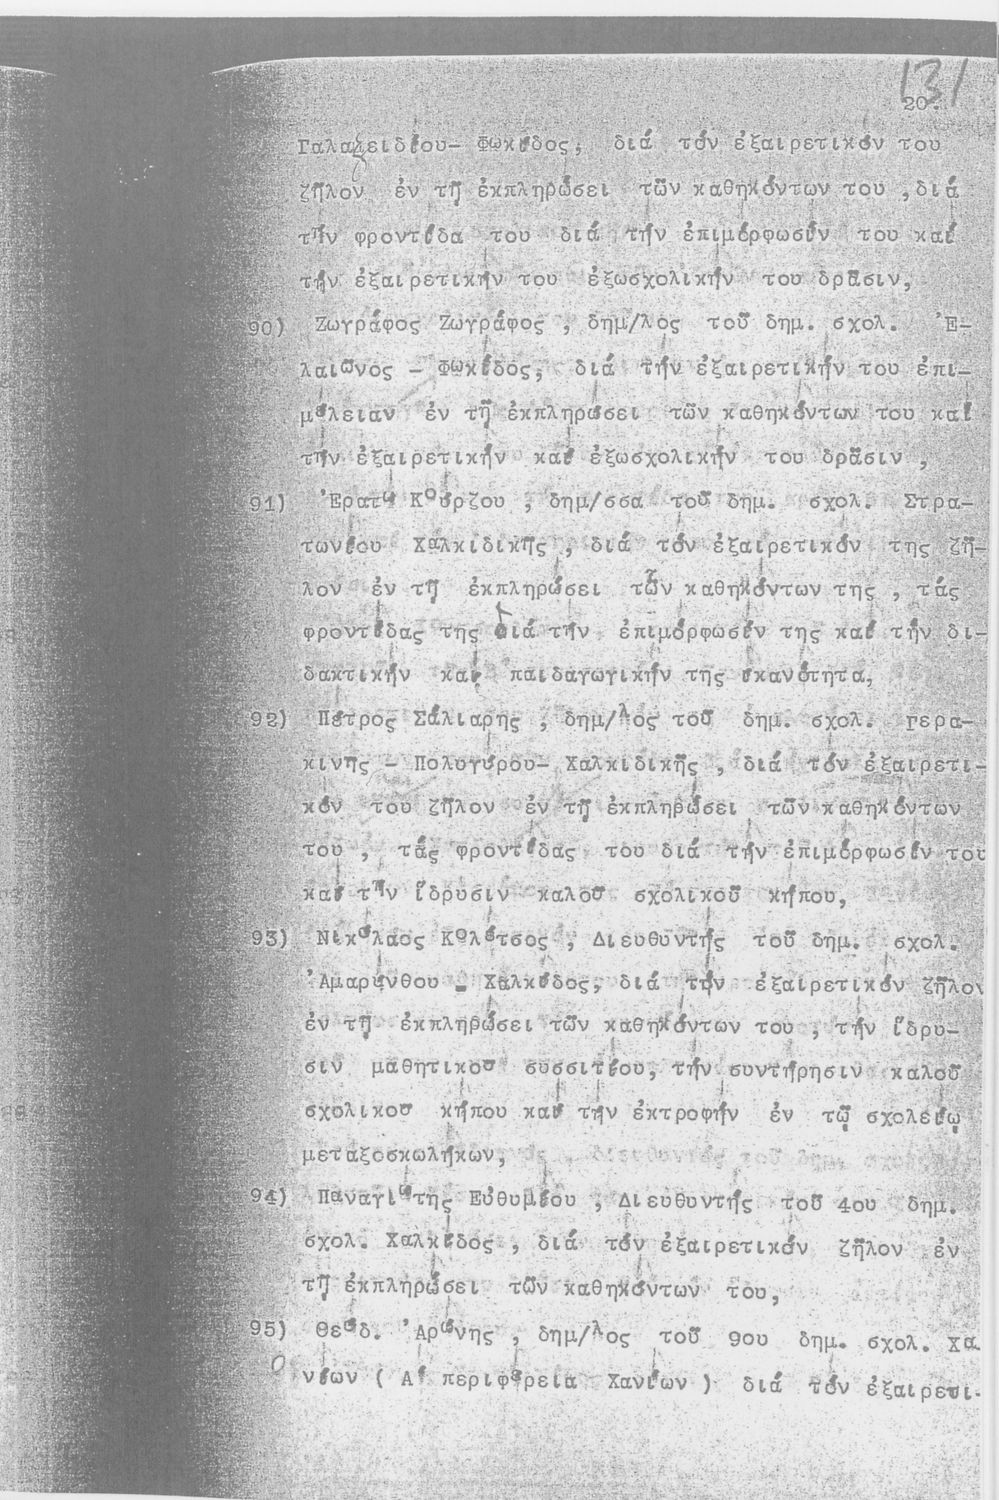 131
20.
Γαλαξειδίου- Φωκίδος, διά τόν ἐξαιρετικόν του
ζῆλον ἐν τῇ ἐκπληρώσει τῶν καθηκόντων του ,διά
τήν φροντίδα του διά τήν ἐπιμόρφωσίν του καί
τήν ἐξαιρετικήν του ἐξωσχολικήν του δρᾶσιν,
90) Ζωγράφος Ζωγράφος , δημ/λος τοῦ δημ. σχολ. Ἐ-
λαιῶνος – Φωκίδος, διά τήν ἐξαιρετικήν του ἐπι-
μέλειαν ἐν τῇ ἐκπληρώσει τῶν καθηκόντων του καί
τήν ἐξαιρετικήν καί ἐξωσχολικήν του δρᾶσιν ,
91) Ἐρατώ Κούρζου , δημ/σσα τοῦ δημ. σχολ. Στρα-
τωνίου Χαλκιδικῆς , διά τόν ἐξαιρετικόν της ζῆ-
λον ἐν τῇ ἐκπληρώσει τῶν καθηκόντων της , τάς
φροντίδας της διά τήν ἐπιμόρφωσίν της καί τήν δι-
δακτικήν καί παιδαγωγικήν της ἱκανότητα,
92) Πέτρος Σάλιαρης , δημ/λος τοῦ δημ. σχολ. Γερα-
κινῆς – Πολυγύρου- Χαλκιδικῆς , διά τόν ἐξαιρετι-
κόν του ζῆλον ἐν τῇ ἐκπληρώσει τῶν καθηκόντων
του , τάς φροντίδας του διά τήν ἐπιμόρφωσίν του
καί τήν ἵδρυσιν καλοῦ σχολικοῦ κήπου,
93) Νικόλαος Κολέτσος , Διευθυντής τοῦ δημ. σχολ.
Ἀμαρύνθου – Χαλκίδος, διά τόν ἐξαιρετικόν ζῆλον
ἐν τῇ ἐκπληρώσει τῶν καθηκόντων του , τήν ἵδρυ-
σιν μαθητικοῦ συσσιτίου, τήν συντήρησιν καλοῦ
σχολικοῦ κήπου καί τήν ἐκτροφήν ἐν τῷ σχολείῳ
μεταξοσκωλήκων,
94) Παναγιώτης Εὐθυμίου , Διευθυντής τοῦ 4ου δημ.
σχολ. Χαλκίδος , διά τόν ἐξαιρετικόν ζῆλον ἐν
τῇ ἐκπληρώσει τῶν καθηκόντων του,
95) Θεόδ. Ἀρώνης , δημ/λος τοῦ 9ου δημ. σχολ. Χα
νίων ( Α΄ περιφέρεια Χανίων ) διά τόν ἐξαιρετι-